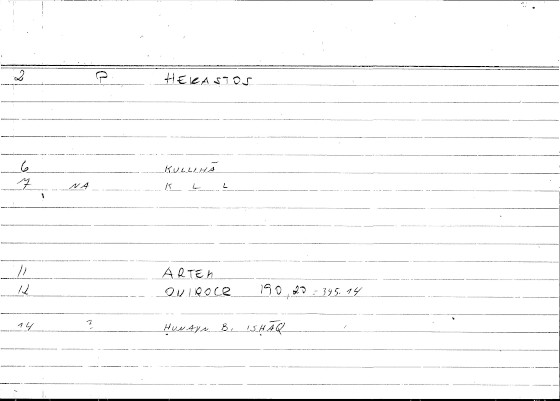 2 P HEKASTOS
6 KULLINĀ
7 NA K L L
11 ARTEM
12 ONIROCR 190,20 = 345.14
14 ? ḤUNAYN B. ISḤĀQ